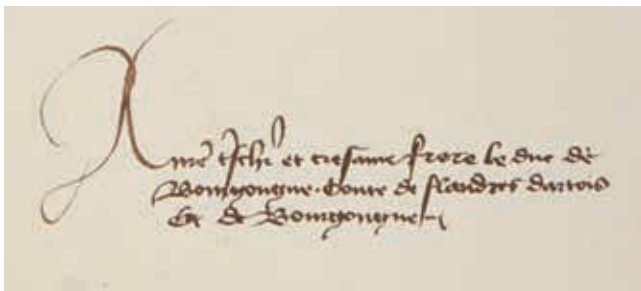 A mre tschr et tresame frere le duc de
Bourgongne. Conte de flandres dartois
Et de Bourgongne